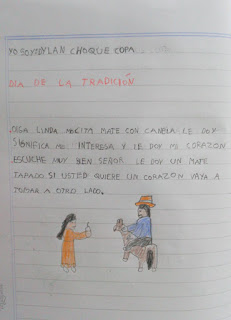 YO SOY DYLAN CHOQUE COPA
DIA DE LA TRADICIÓN
OIGA LINDA MOCITA MATE CON CANELA LE DOY
SIGNIFICA ME INTERESA Y LE DOY MI CORAZON
ESCUCHE MUY BIEN SEÑOR LE DOY UN MATE
TAPADO SI USTED QUIERE UN CORAZON VAYA A
TOMAR A OTRO LADO.